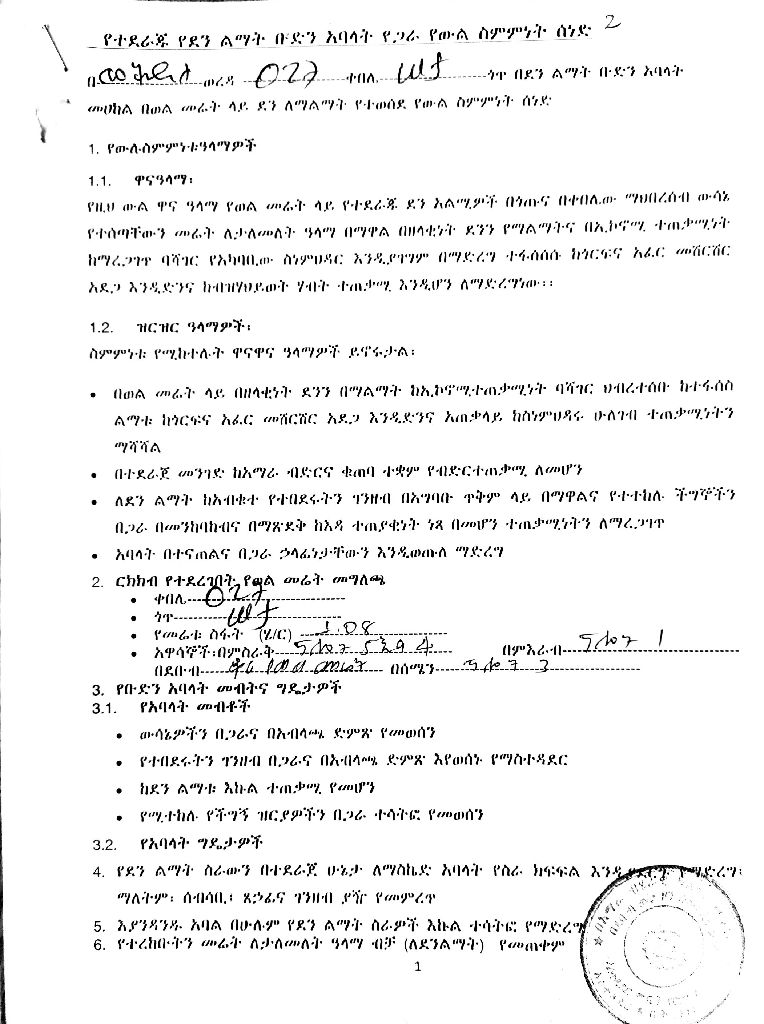 የተደራጁ የደን ልማት ቡድን አባላት የጋራ የውል ስምምነት ሰነድ 2
በ ወረዳ 027 ቀበሌ ጎጥ በደን ልማት ቡድን አባላት
መሀከል በወል መሬት ላይ ደን ለማልማት የተወሰደ የውል ስምምነት ሰነድ
1. የውሉስምምነቱዓላማዎች
1.1. ዋናዓላማ፡
የዚህ ውል ዋና ዓላማ የወል መሬት ላይ የተደራጁ ደን አልሚዎች በጎጡና በቀበሌው ማህበረሰብ ውሳኔ
የተሰጣቸውን መሬት ለታለመለት ዓላማ በማዋል በዘላቂነት ደንን የማልማትና በኢኮኖሚ ተጠቃሚነት
ከማረጋገጥ ባሻገር የአካባቢው ስነምህዳር እንዲያገግም በማድረግ ተፋሰሰሱ ከጎርፍና አፈር መሸርሸር
አደጋ እንዲድንና ከብዝሃህይወት ሃብት ተጠቃሚ እንዲሆን ለማድረግነው፡፡
1.2. ዝርዝር ዓላማዎች፡
ስምምነቱ የሚከተሉት ዋናዋና ዓላማዎች ይኖሩታል፡
• በወል መሬት ላይ በዘላቂነት ደንን በማልማት ከኢኮኖሚተጠቃሚነት ባሻገር ህብረተሰቡ ከተፋሰስ
ልማቱ ከጎርፍና አፈር መሸርሸር አደጋ እንዲድንና አጠቃላይ ከስነምህዳሩ ሁለገብ ተጠቃሚነትን
ማሻሻል
• በተደራጀ መንገድ ከአማራ ብድርና ቁጠባ ተቋም የብድርተጠቃሚ ለመሆን
• ለደን ልማት ከአብቁተ የተበደሩትን ገንዘብ በአግባቡ ጥቅም ላይ በማዋልና የተተከሉ ችግኞችን
በጋራ በመንከባከብና በማጽደቅ ከእዳ ተጠያቂነት ነጻ በመሆን ተጠቃሚነትን ለማረጋገጥ
• አባላት በተናጠልና በጋራ ኃላፊነታቸውን እንዲወጡለ ማድረግ
2. ርክክብ የተደረገበት የወል መሬት መግለጫ
• ቀበሌ 027
• ጎጥ
• የመሬቱ ስፋት (ሄ/ር) 1.08
• አዋሳኞች፡በምስራቅ በምእራብ 1
በደቡብ በሰሜን 3
3. የቡድን አባላት መብትና ግዴታዎች
3.1. የአባላት መብቶች
• ውሳኔዎችን በጋራና በአብላጫ ድምጽ የመወሰን
• የተበደሩትን ገንዘብ በጋራና በአብላጫ ድምጽ እየወሰኑ የማስተዳደር
• ከደን ልማቱ እኩል ተጠቃሚ የመሆን
• የሚተከሉ የችግኝ ዝርያዎችን በጋራ ተሳትፎ የመወሰን
3.2. የአባላት ግዴታዎች
4. የደን ልማት ስራውን በተደራጀ ሁኔታ ለማስኬድ አባላት የስራ ክፍፍል እንዲያደርጉ የማድረግ፡
ማለትም፡ ሰብሳቢ፡ ጸኃፊና ገንዘብ ያዥ የመምረጥ
5. እያንዳንዱ አባል በሁሉም የደን ልማት ስራዎች እኩል ተሳትፎ የማድረግ
6. የተረከቡትን መሬት ለታለመለት ዓላማ ብቻ (ለደንልማት) የመጠቀም
1